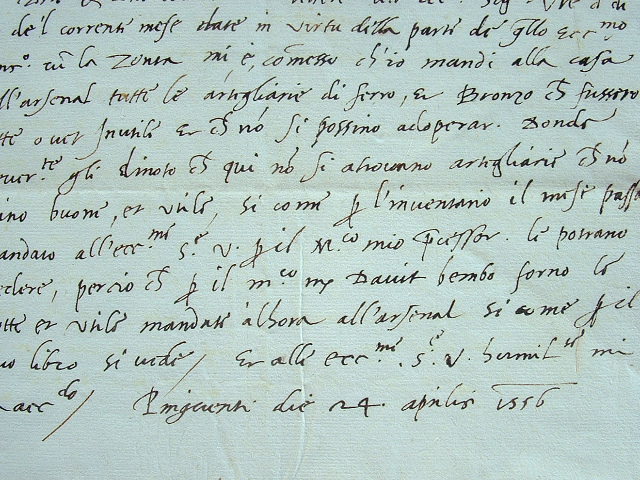 de'l corrente mese date in virtu della parte de q̃llo Ecc.mo
cũ la zonta mi è, comesso ch'io mandi alla casa
ll'arsenal tutte le artigliarie di ferro, et Bronzo ch̃ fussero
tte o ver Inutile et ch̃ nõ si possino adoperar. Donde
gli dinoto ch̃ qui nõ si atrovano artigliarie ch̃ nõ
ino buone, et utile, si come p l'inventario il mese passa
andato all'ecc.me S.e V. p il M.co mio p̃cessor. le potrano
edere, perciò ch̃ p il m.co m Davit bembo forno le
otte et utile mandate alhora all'arsenal si come p il
uo libro si vede / Et alle ecc.me S.e V. humil.te mi
racc.do / Pinguenti die 24. aprilis 1556